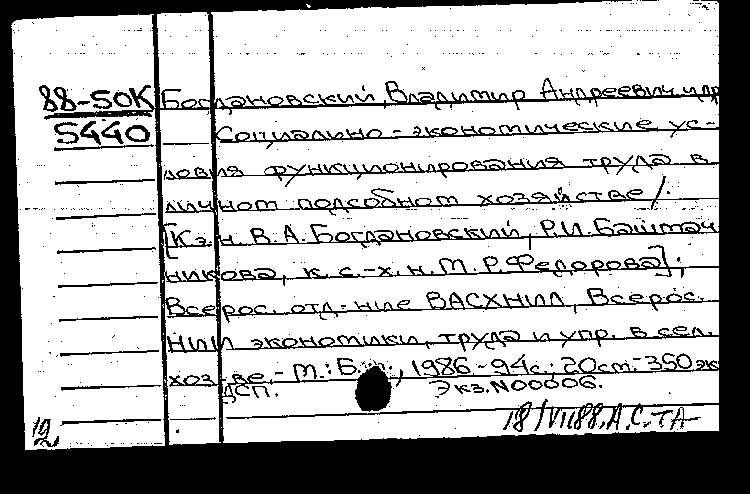 88-50К Богдановский, Владимир Андреевич и др
5440 Социально-экономические ус-
ловия функционирования труда в
личном подсобном хозяйстве /
[К.э.н. В.А. Богдановский, Р.И. Баштач-
никова, к. с.-х. н. М.Р. Федорова];
Всерос. отд-ние ВАСХНИЛ, Всерос.
НИИ экономики, труда и упр. в сел.
хоз-ве. - М.: Б.и., 1986 - 94с.; 20см. - 350 эк
ДСП. Экз. N00006.
12 18/VII88. А.С.